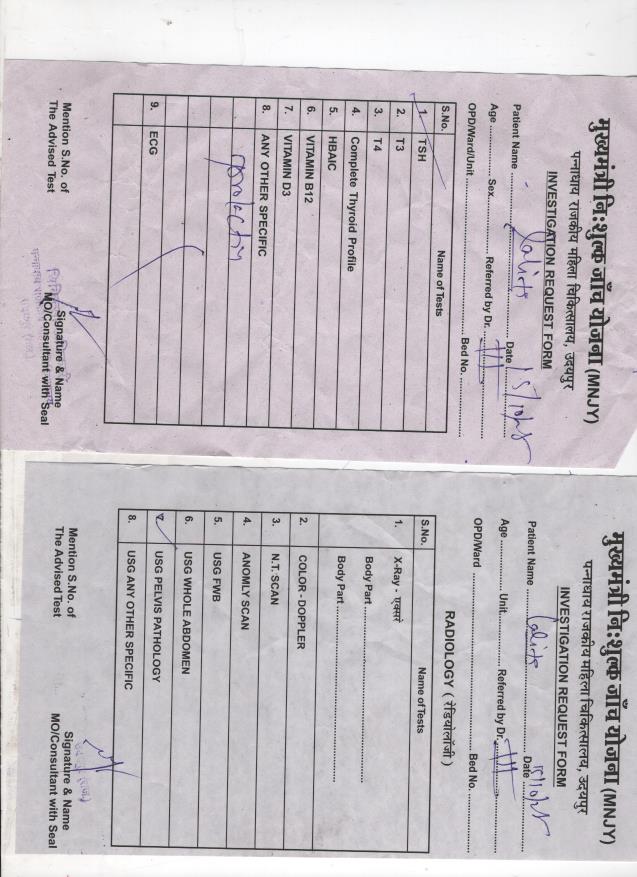 मुख्यमंत्री नि:शुल्क जाँच योजना (MNJY)
पन्नाधाय राजकीय महिला चिकित्सालय, उदयपुर
INVESTIGATION REQUEST FORM
Patient Name ........ Lalita ........ Date 15/10/25
Age ............ Sex ............ Referred by Dr. ............
OPD/Ward/Unit ............ Bed No. ............
S.No. Name of Tests
1. TSH
2. T3
3. T4
4. Complete Thyroid Profile
5. HBAIC
6. VITAMIN B12
7. VITAMIN D3
8. ANY OTHER SPECIFIC
prolactin
9. ECG
Mention S.No. of
The Advised Test
Signature & Name
MO/Consultant with Seal
मुख्यमंत्री नि:शुल्क जाँच योजना (MNJY)
पन्नाधाय राजकीय महिला चिकित्सालय, उदयपुर
INVESTIGATION REQUEST FORM
Patient Name ........ Lalita ........ Date 15/10/25
Age ............ Unit ............ Referred by Dr. ............
OPD/Ward ............ Bed No. ............
RADIOLOGY ( रेडियोलॉजी )
S.No. Name of Tests
1. X-Ray - एक्सरे
Body Part ............
Body Part ............
2. COLOR - DOPPLER
3. N.T. SCAN
4. ANOMLY SCAN
5. USG FWB
6. USG WHOLE ABDOMEN
7. USG PELVIS PATHOLOGY
8. USG ANY OTHER SPECIFIC
Mention S.No. of
The Advised Test
Signature & Name
MO/Consultant with Seal